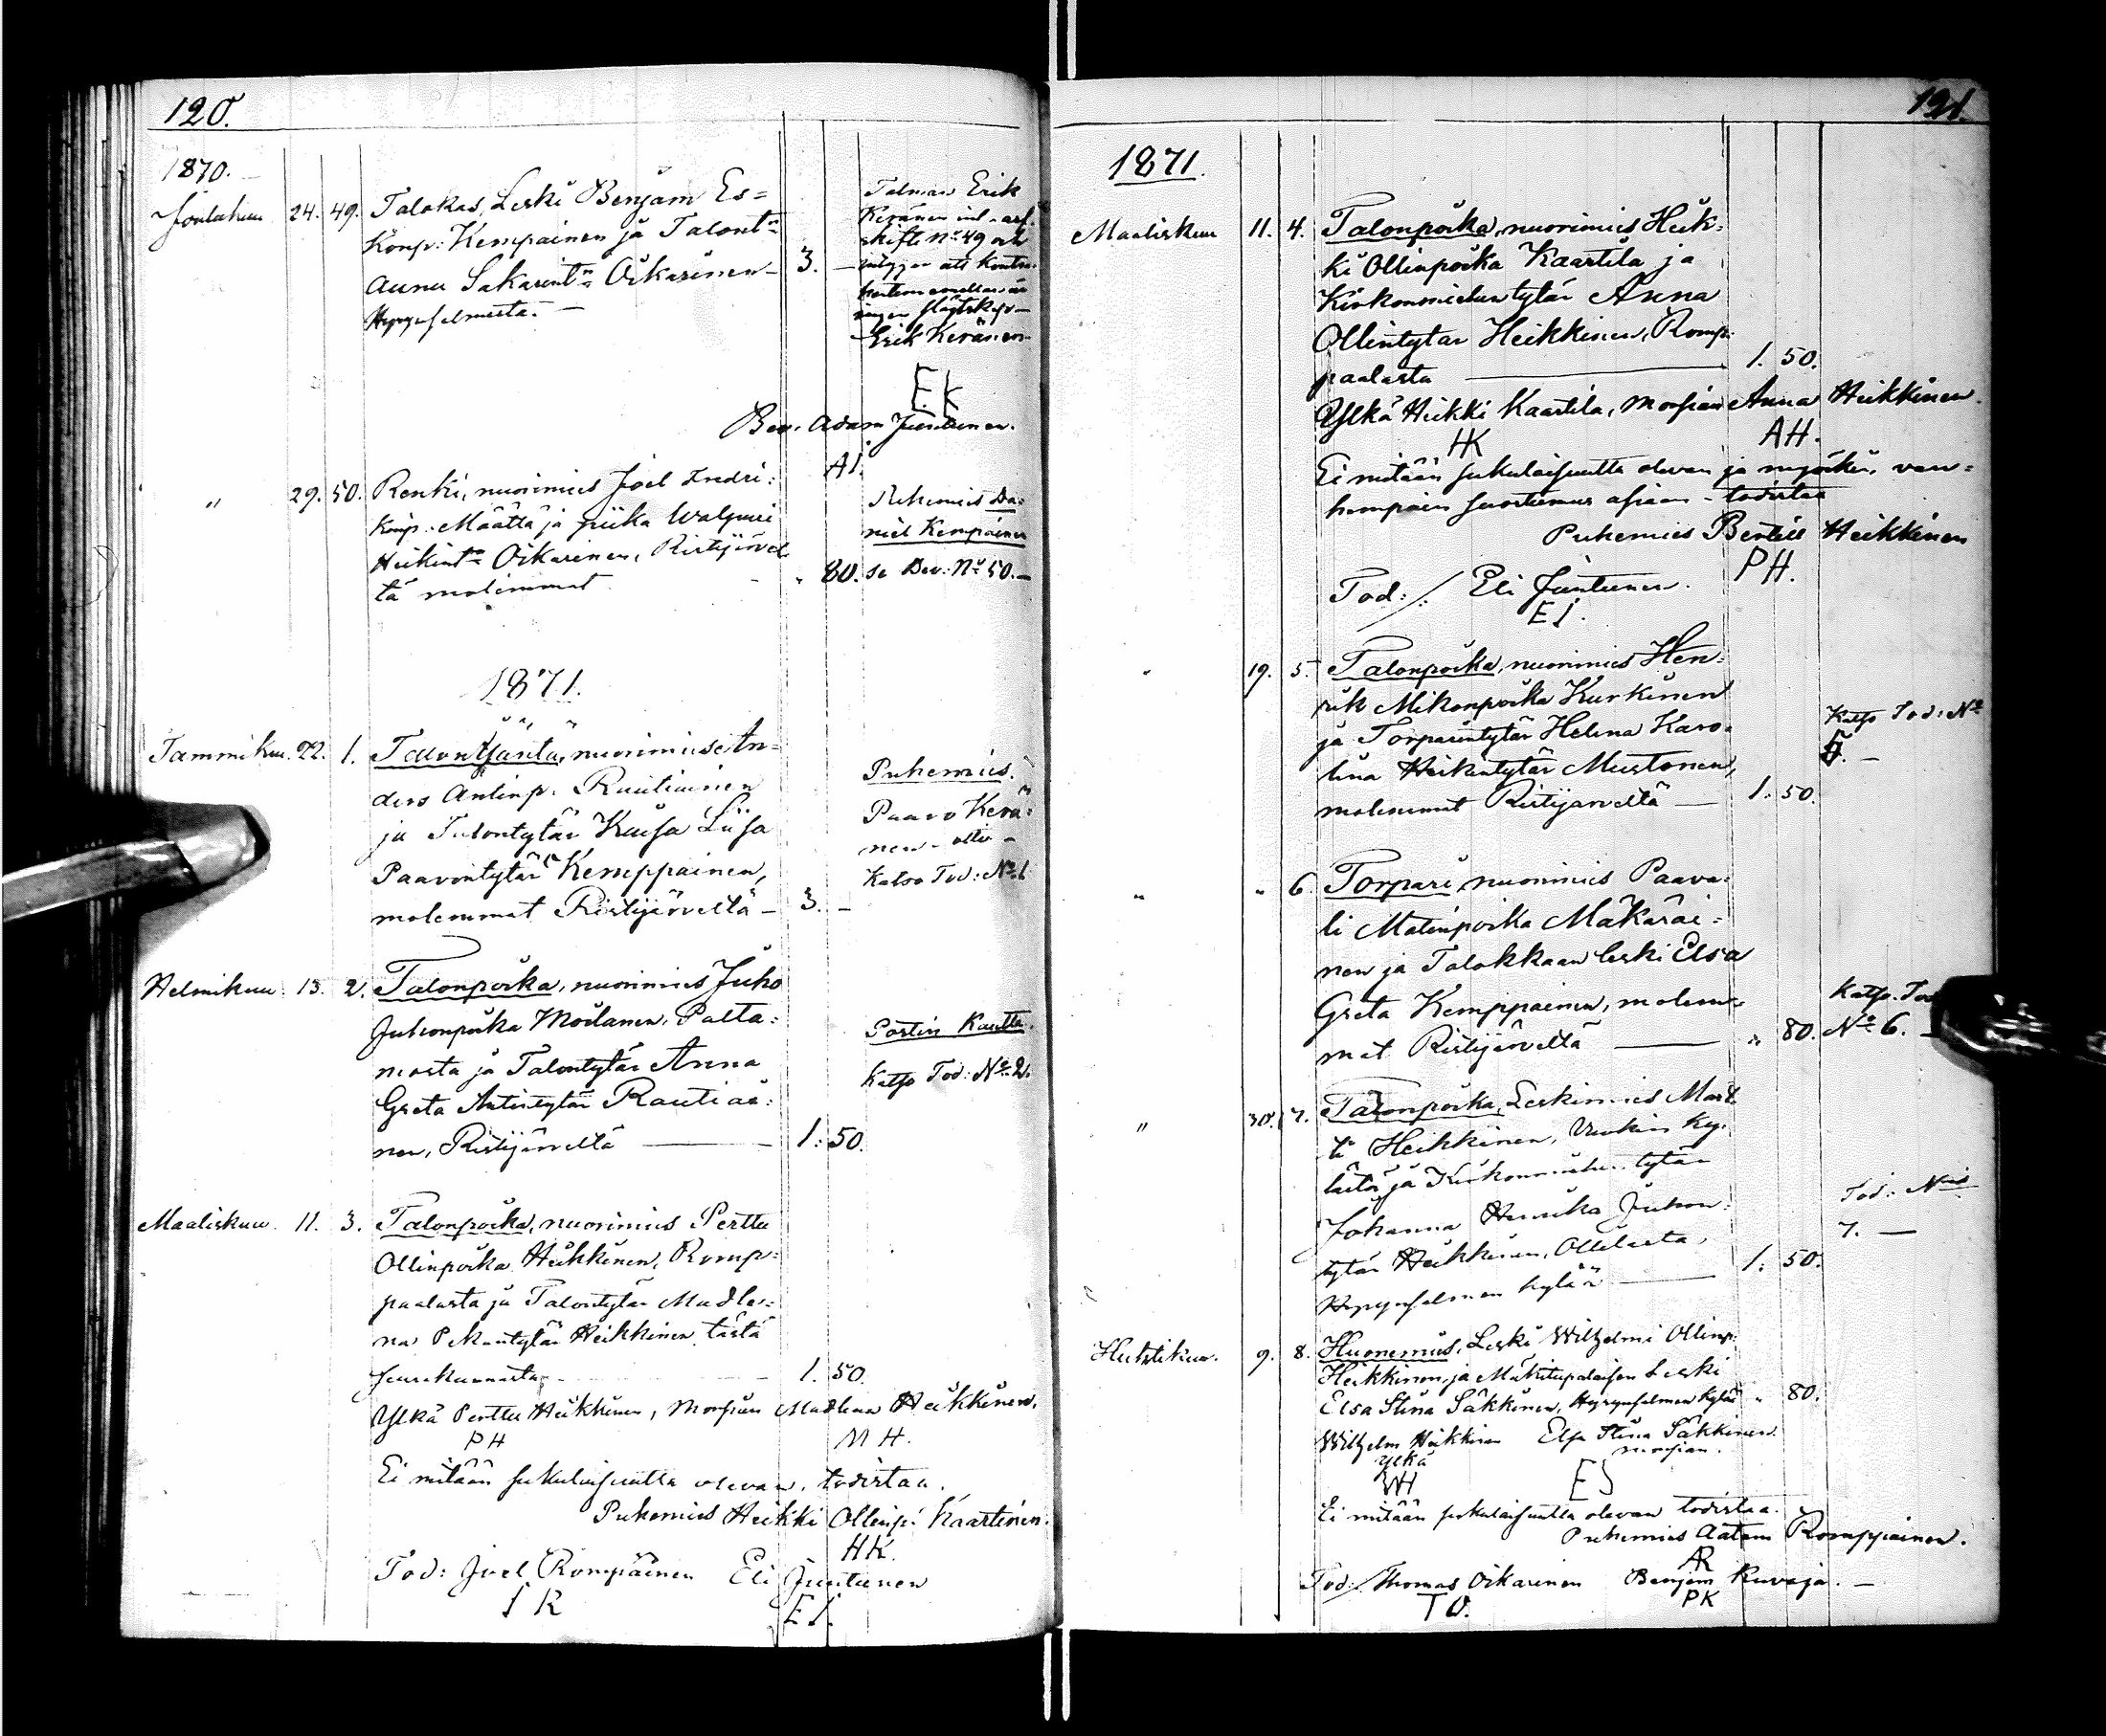 120.
1870.
Joulukuu 24. 49. Talokas, Leski Benjam Es=
Konp: Kempainen ja Talont:
Aunu Sakarint: Oikarinen 3. —
Hyrynsalmesta. —
Talman Erik
Keränen
skifte No 49 och
intygar att
Erik Keränen
EK
Bev. Adam Juntunen.
AI.
„ 29. 50. Renki, nuorimies Joel Indri:
Konp: Määttä ja piika Walpuri
Heikint: Oikarinen, Ristijärvel
tä molemmat „ 80.
Puhemies Da:
niel Kempainen
se Bev: No 50. —
1871.
Tammikuu. 22. 1. Talontjäntä, nuorimies An=
ders Antinp. Rautiainen
ja Talontytär Kaisa Liisa
Paavontytär Kemppainen,
molemmat Ristijärveltä — 3. —
Puhemies.
Paavo Kerä:
nen — otti —
Katso Tod: No 1
Helmikuu. 13. 2. Talonpoika, nuorimies Juho
Juhonpoika Moilanen, Palta:
mosta ja Talontytär Anna
Greta Antintytär Rautiai:
nen, Ristijärveltä — 1: 50.
Postin Kautta.
Katso Tod: No 2.
Maaliskuu. 11. 3. Talonpoika, nuorimies Perttu
Ollinpoika Heikkinen, Romp=
paalasta ja Talontytär Madle:
na Pekantytär Heikkinen tästä
seurakunnasta 1. 50.
Ylkä Perttu Heikkinen, Morsian Madlena Heikkinen.
PH MH.
Ei mitään sukulaisuutta olevan, todistaa.
Puhemies Heikki Ollinp: Kaartinen.
HK.
Tod: Joel Rompainen Eli Juntunen
IR EI.
121.
1871.
Maaliskuu 11. 4. Talonpoika, nuorimies Heik:
ki Ollinpoika Kaartila ja
Kirkonmiehen tytär Anna
Ollintytär Heikkinen, Romp:
paalasta — 1. 50.
Ylkä Heikki Kaartila, Morsian Anna Heikkinen.
HK AH.
Ei mitään sukulaisuutta olevan ja myöskin, van=
hempain suostumus asiaan — todistaa
Puhemies Bertill Heikkinen
PH.
Tod:/: Eli Juntunen.
EI.
„ 19. 5. Talonpoika, nuorimies Hen:
rik Mikonpoika Kurkinen
ja Torparintytär Helena Karo:
lina Heikintytär Mustonen,
molemmat Ristijärveltä — 1. 50.
Katso Tod: No
5. —
„ „ 6. Torpari nuorimies Paava:
li Matinpoika Mäkäräi:
nen ja Talokkaan leski Elsa
Greta Kemppainen, molem:
mat Ristijärveltä — „ 80.
Katso. To
No 6. —
„ 30. 7. Talonpoika, Leskimies Mart
ti Heikkinen, Uvakin Ky:
lästä ja Kirkonmiehen tytär
Johanna Henrika Juhon:
tytär Heikkinen, Ollilasta,
Hyrynsalmen kylää — 1. 50.
Tod: No
7. —
Huhtikuu. 9. 8. Huonemies, Leski Wilhelmi Ollinp:
Heikkinen, ja Mäkitupalaisen Leski
Elsa Stina Säkkinen, Hyrynsalmen kylää „ 80.
Wilhelm Heikkinen Elsa Stina Säkkinen
ylkä morsian.
WH ES
Ei mitään sukulaisuutta olevan todistaa.
Puhemies Aatam Romppainen.
AR
Tod:/ Thomas Oikarinen Benjam Kuvaja. —
TO. PK